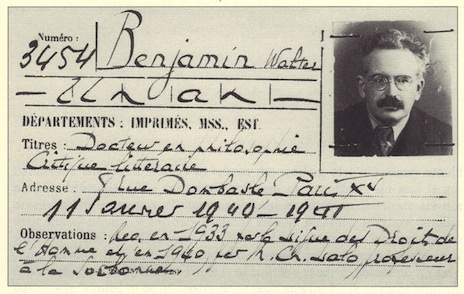 Numéro :
3454
Benjamin Walter
Un an
DÉPARTEMENTS : IMPRIMÉS, MSS., EST.
Titres : Docteur en philosophie
Critique littéraire
Adresse : rue Dombasle Paris XV
11 Janvier 1940 - 1941
Observations : Rec. en 1933 par la Ligue des Droits de
l'Homme et en 1940 par M. Ch. Lalo professeur
à la Sorbonne.